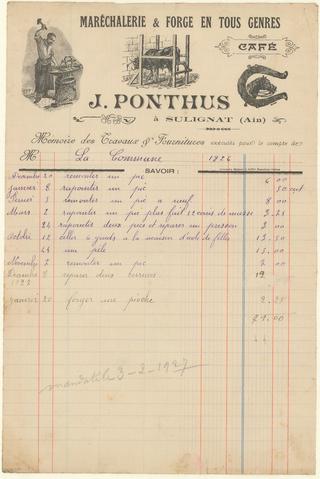 MARÉCHALERIE & FORGE EN TOUS GENRES
CAFÉ
J. PONTHUS
à SULIGNAT (Ain)
Mémoire des Travaux & Fournitures exécutés pour le compte de
M La Commune 1926
SAVOIR :
Décembre 20 remonter un pic 6 00
Janvier 8 rapointer un pic 50
Février 3 remonter un pic a neuf 8 00
Mars 2 rapointer un pic plus fait 12 3 25
24 rapointer deux pics et réparer un 3 00
Octobre 12 coller 6 gonds a la maison d'école de filles 13 50
24 un pèle 15 00
Novembre 2 remonter un pic 7 00
Décembre 8 réparer deux 19
1927
Janvier 20 forger une pioche
79.00
mandaté le 3-2-1927